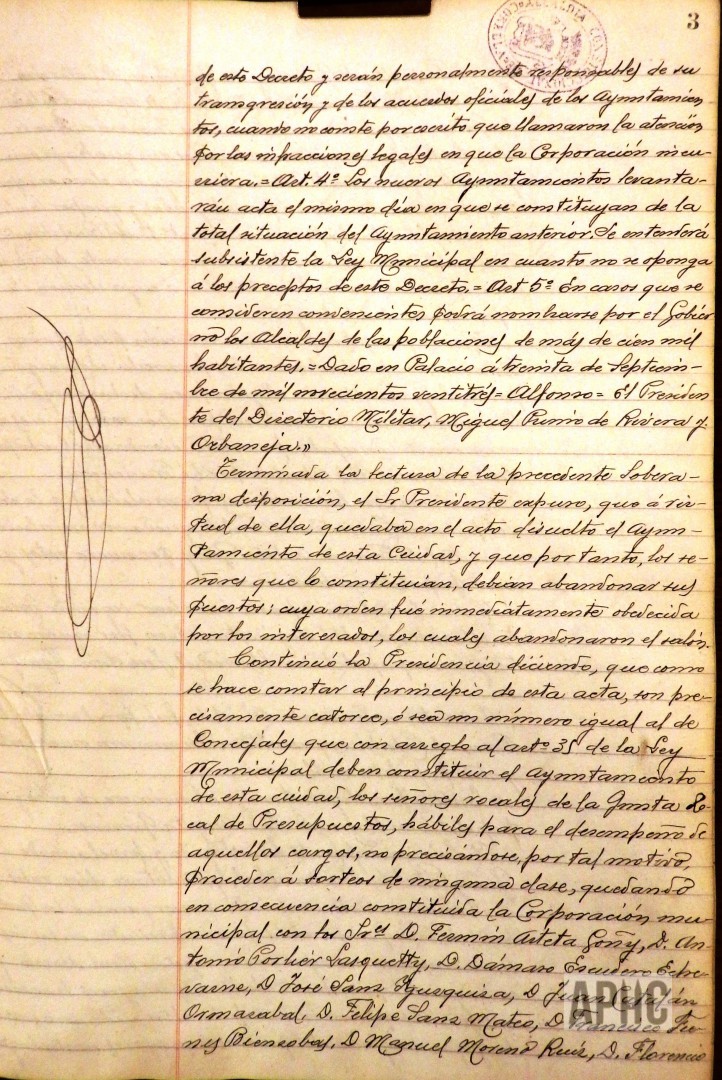 3
de este Decreto y serán personalmente responsables de su
transgresión y de los acuerdos oficiales de los Ayuntamien
tos, cuando no conste por escrito que llamaron la atención
por las infracciones legales en que la Corporación incu-
rriera.=Art. 4º Los nuevos Ayuntamientos levanta-
rán acta el mismo día en que se constituyan de la
total situación del Ayuntamiento anterior. Se entenderá
subsistente la Ley Municipal en cuanto no se oponga
á los preceptos de este Decreto.= Art 5º En casos que se
consideren convenientes podrá nombrarse por el Gobier
no los Alcaldes de las poblaciones de más de cien mil
habitantes.=Dado en Palacio á treinta de Septiem-
bre de mil novecientos ventitrés= Alfonso= El Presiden
te del Directorio Militar, Miguel Primo de Rivera y
Orbaneja.»
Terminada la lectura de la precedente Sobera-
na disposición, el Sr Presidente expuso, que á vir-
tud de ella, quedaba en el acto disuelto el Ayun-
tamiento de esta Ciudad, y que por tanto, los se-
ñores que lo constituían, debían abandonar sus
puestos; cuya orden fué inmediatamente obedecida
por los interesados, los cuales abandonaron el salón.
Continuó la Presidencia diciendo, que como
se hace constar al principio de esta acta, son pre-
cisamente catorce, ó sea un número igual al de
Concejales que con arreglo al artº 35 de la Ley
Municipal deben constituir el Ayuntamiento
de esta ciudad, los señores vocales de la Junta Lo-
cal de Presupuestos, hábiles para el desempeño de
aquellos cargos, no precisándose, por tal motivo
proceder á sorteos de ninguna clase, quedando
en consecuencia constituida la Corporación mu-
nicipal con los Sres D. Fermín Arteta Goñy, D. An-
tonio Porlier Lasquetty, D. Dámaso Escudero Eche-
varne, D José Sanz Yzurquiza, D Juan Catalán
Ormazabal, D. Felipe Sanz Mateo, D Francisco
Biencobas, D Manuel Moreno Ruiz, D. Florencio
APHC